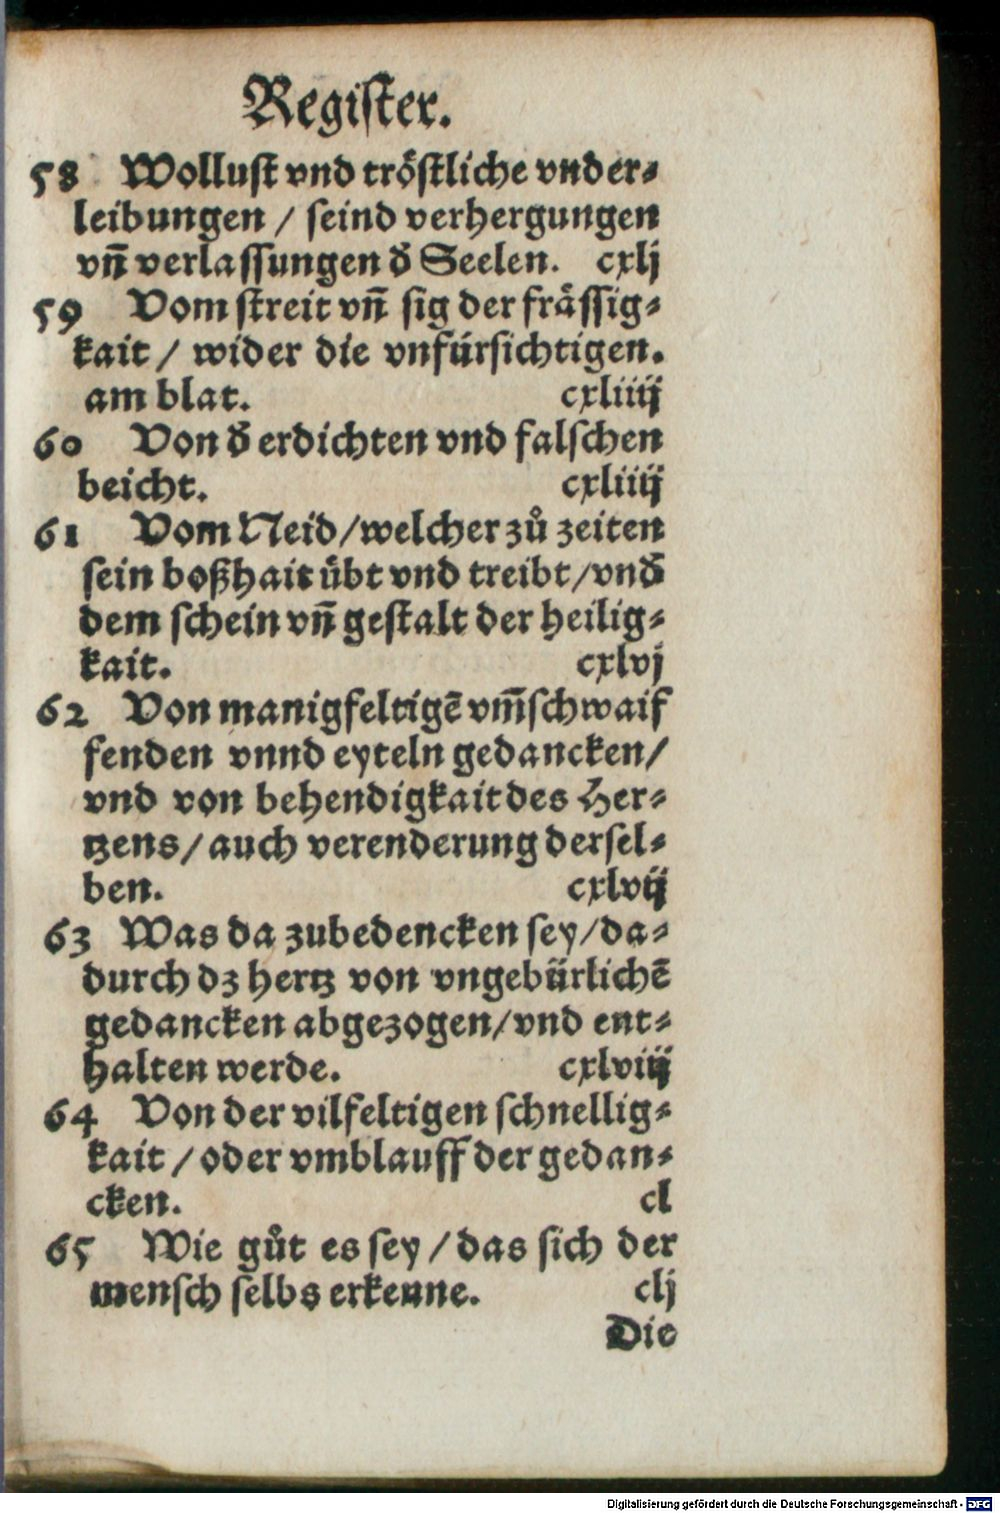 Register.
58 Wollust vnd tröstliche vnder⸗
leibungen / seind verhergungen
vñ verlassungen d̕ Seelen. cxlj
59 Vom streit vñ sig der frässig⸗
kait / wider die vnfürsichtigen.
am blat. cxliiij
60 Von d̕ erdichten vnd falschen
beicht. cxliiij
61 Vom Neid/welcher zů zeiten
sein boßhait übt vnd treibt/vnd̕
dem schein vñ gestalt der heilig⸗
kait. cxlvj
62 Von manigfeltigẽ vm̃schwaif
fenden vnnd eyteln gedancken/
vnd von behendigkait des Her⸗
tzens/auch verenderung dersel⸗
ben. cxlvij
63 Was da zubedencken sey/da⸗
durch dz hertz von vngebürlichẽ
gedancken abgezogen/vnd ent⸗
halten werde. cxlviij
64 Von der vilfeltigen schnellig⸗
kait / oder vmblauff der gedan⸗
cken. cl
65 Wie gůt es sey / das sich der
mensch selbs erkenne. clj
Die
Digitalisierung gefördert durch die Deutsche Forschungsgemeinschaft - DFG